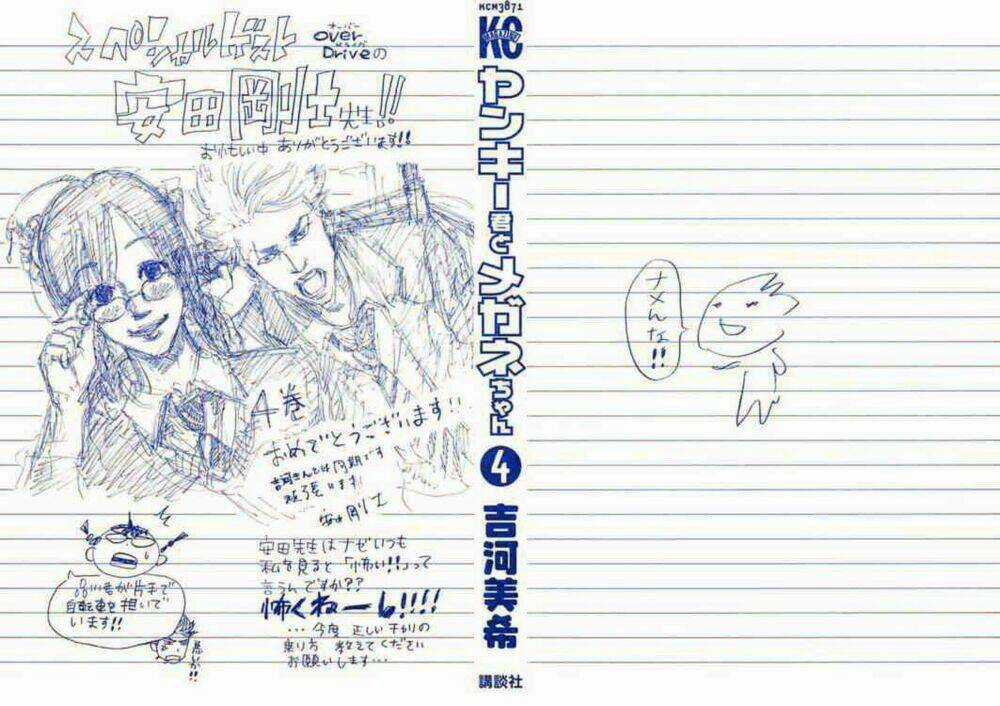 スペシャルゲスト
オーバー
over
ドライブ
Driveの
安田剛士先生!!
おいそがしい中 ありがとうございます!!
4巻
おめでとうございます!!
吉河さんとは同期です
頑張います!
安田剛士
品川君が片手で
自転車を担いで
います!!
安田先生はナゼいつも
私を見ると「怖い!!」って
言うんですか??
怖くねーし!!!!
…今度 正しいチャリの
乗り方 教えてください
お願いします…
KCM3871
KC
MAGAZINE
ヤンキー君とメガネちゃん
4
吉河美希
講談社
ナメんな!!